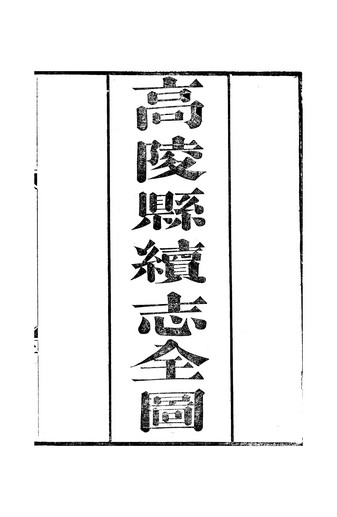 高陵縣續志全圖